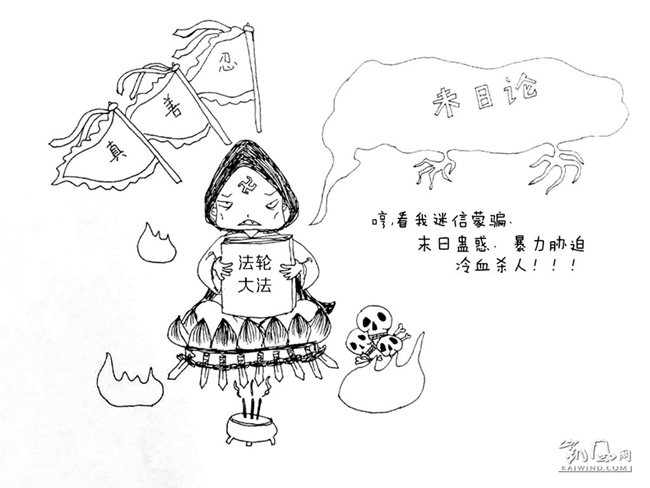 忍
善
真
末日论
哼,看我迷信蒙骗.
末日蛊惑.暴力胁迫
冷血杀人!!!
卍
法轮
大法
凯风网
KAIWIND.COM